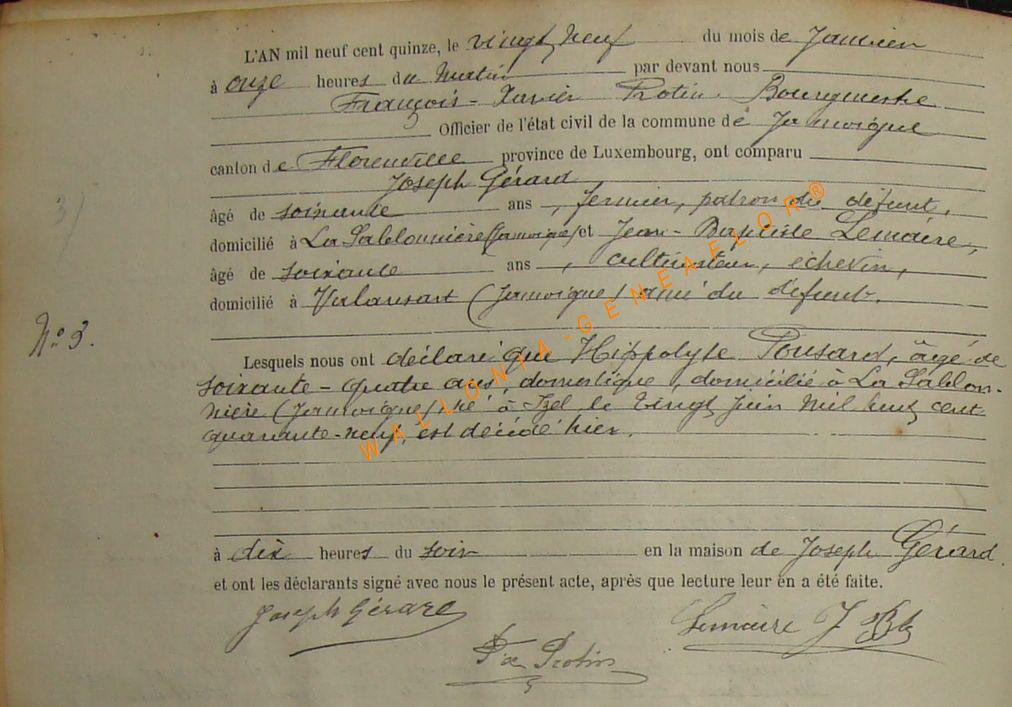 L'AN mil neuf cent quinze, le vingt neuf du mois de Janvier
à onze heures du Matin par devant nous
François-Xavier Protin Bourgmestre
Officier de l'état civil de la commune de Jamoigne
canton de Florenville province de Luxembourg, ont comparu
Joseph Gérard
âgé de soixante ans, fermier, patron du défunt,
domicilié à La Sablonnière (Jamoigne) et Jean-Baptiste Lemaire,
âgé de soixante ans, cultivateur, échevin,
domicilié à Valansart (Jamoigne) ami du défunt.
N° 3.
Lesquels nous ont déclaré que Hippolyte Pousard, âgé de
soixante-quatre ans, domestique, domicilié à La Sablon-
nière (Jamoigne) né à Izel le vingt juin mil huit cent
quarante-neuf, est décédé hier.
à dix heures du soir en la maison de Joseph Gérard.
et ont les déclarants signé avec nous le présent acte, après que lecture leur en a été faite.
Joseph Gérard Lemaire J Bte
F x Protin
WALLONIA-GENEAFLOR®